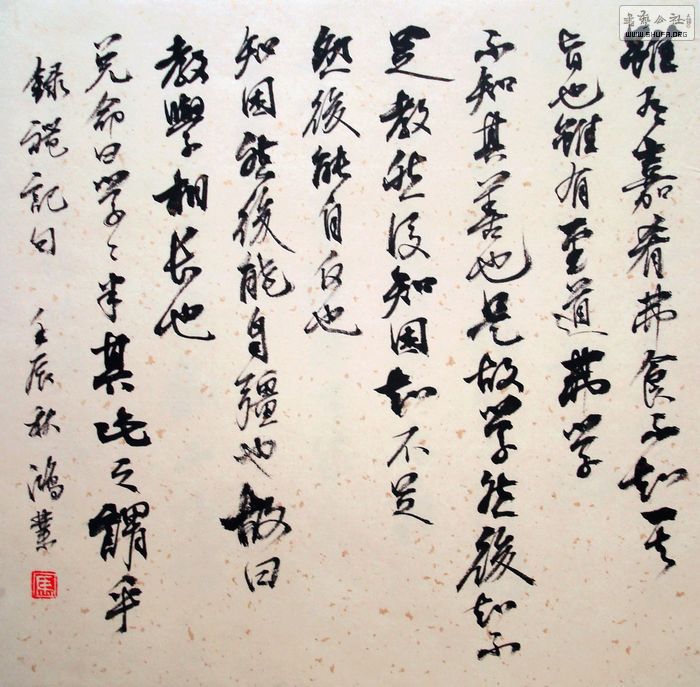 雖有嘉肴弗食不知其
旨也雖有至道弗學
不知其善也是故學然後知不
足教然後知困知不足
然後能自反也
知困然後能自彊也故曰
教學相長也
兌命曰學〻半其此之謂乎
録禮記句 壬辰秋 鴻業
WWW.SHUFA.ORG